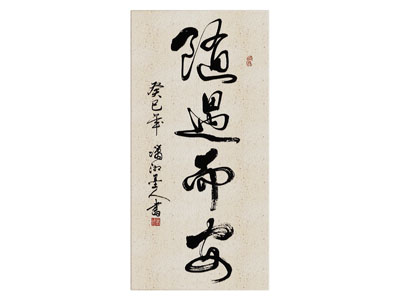 随遇而安
癸巳年